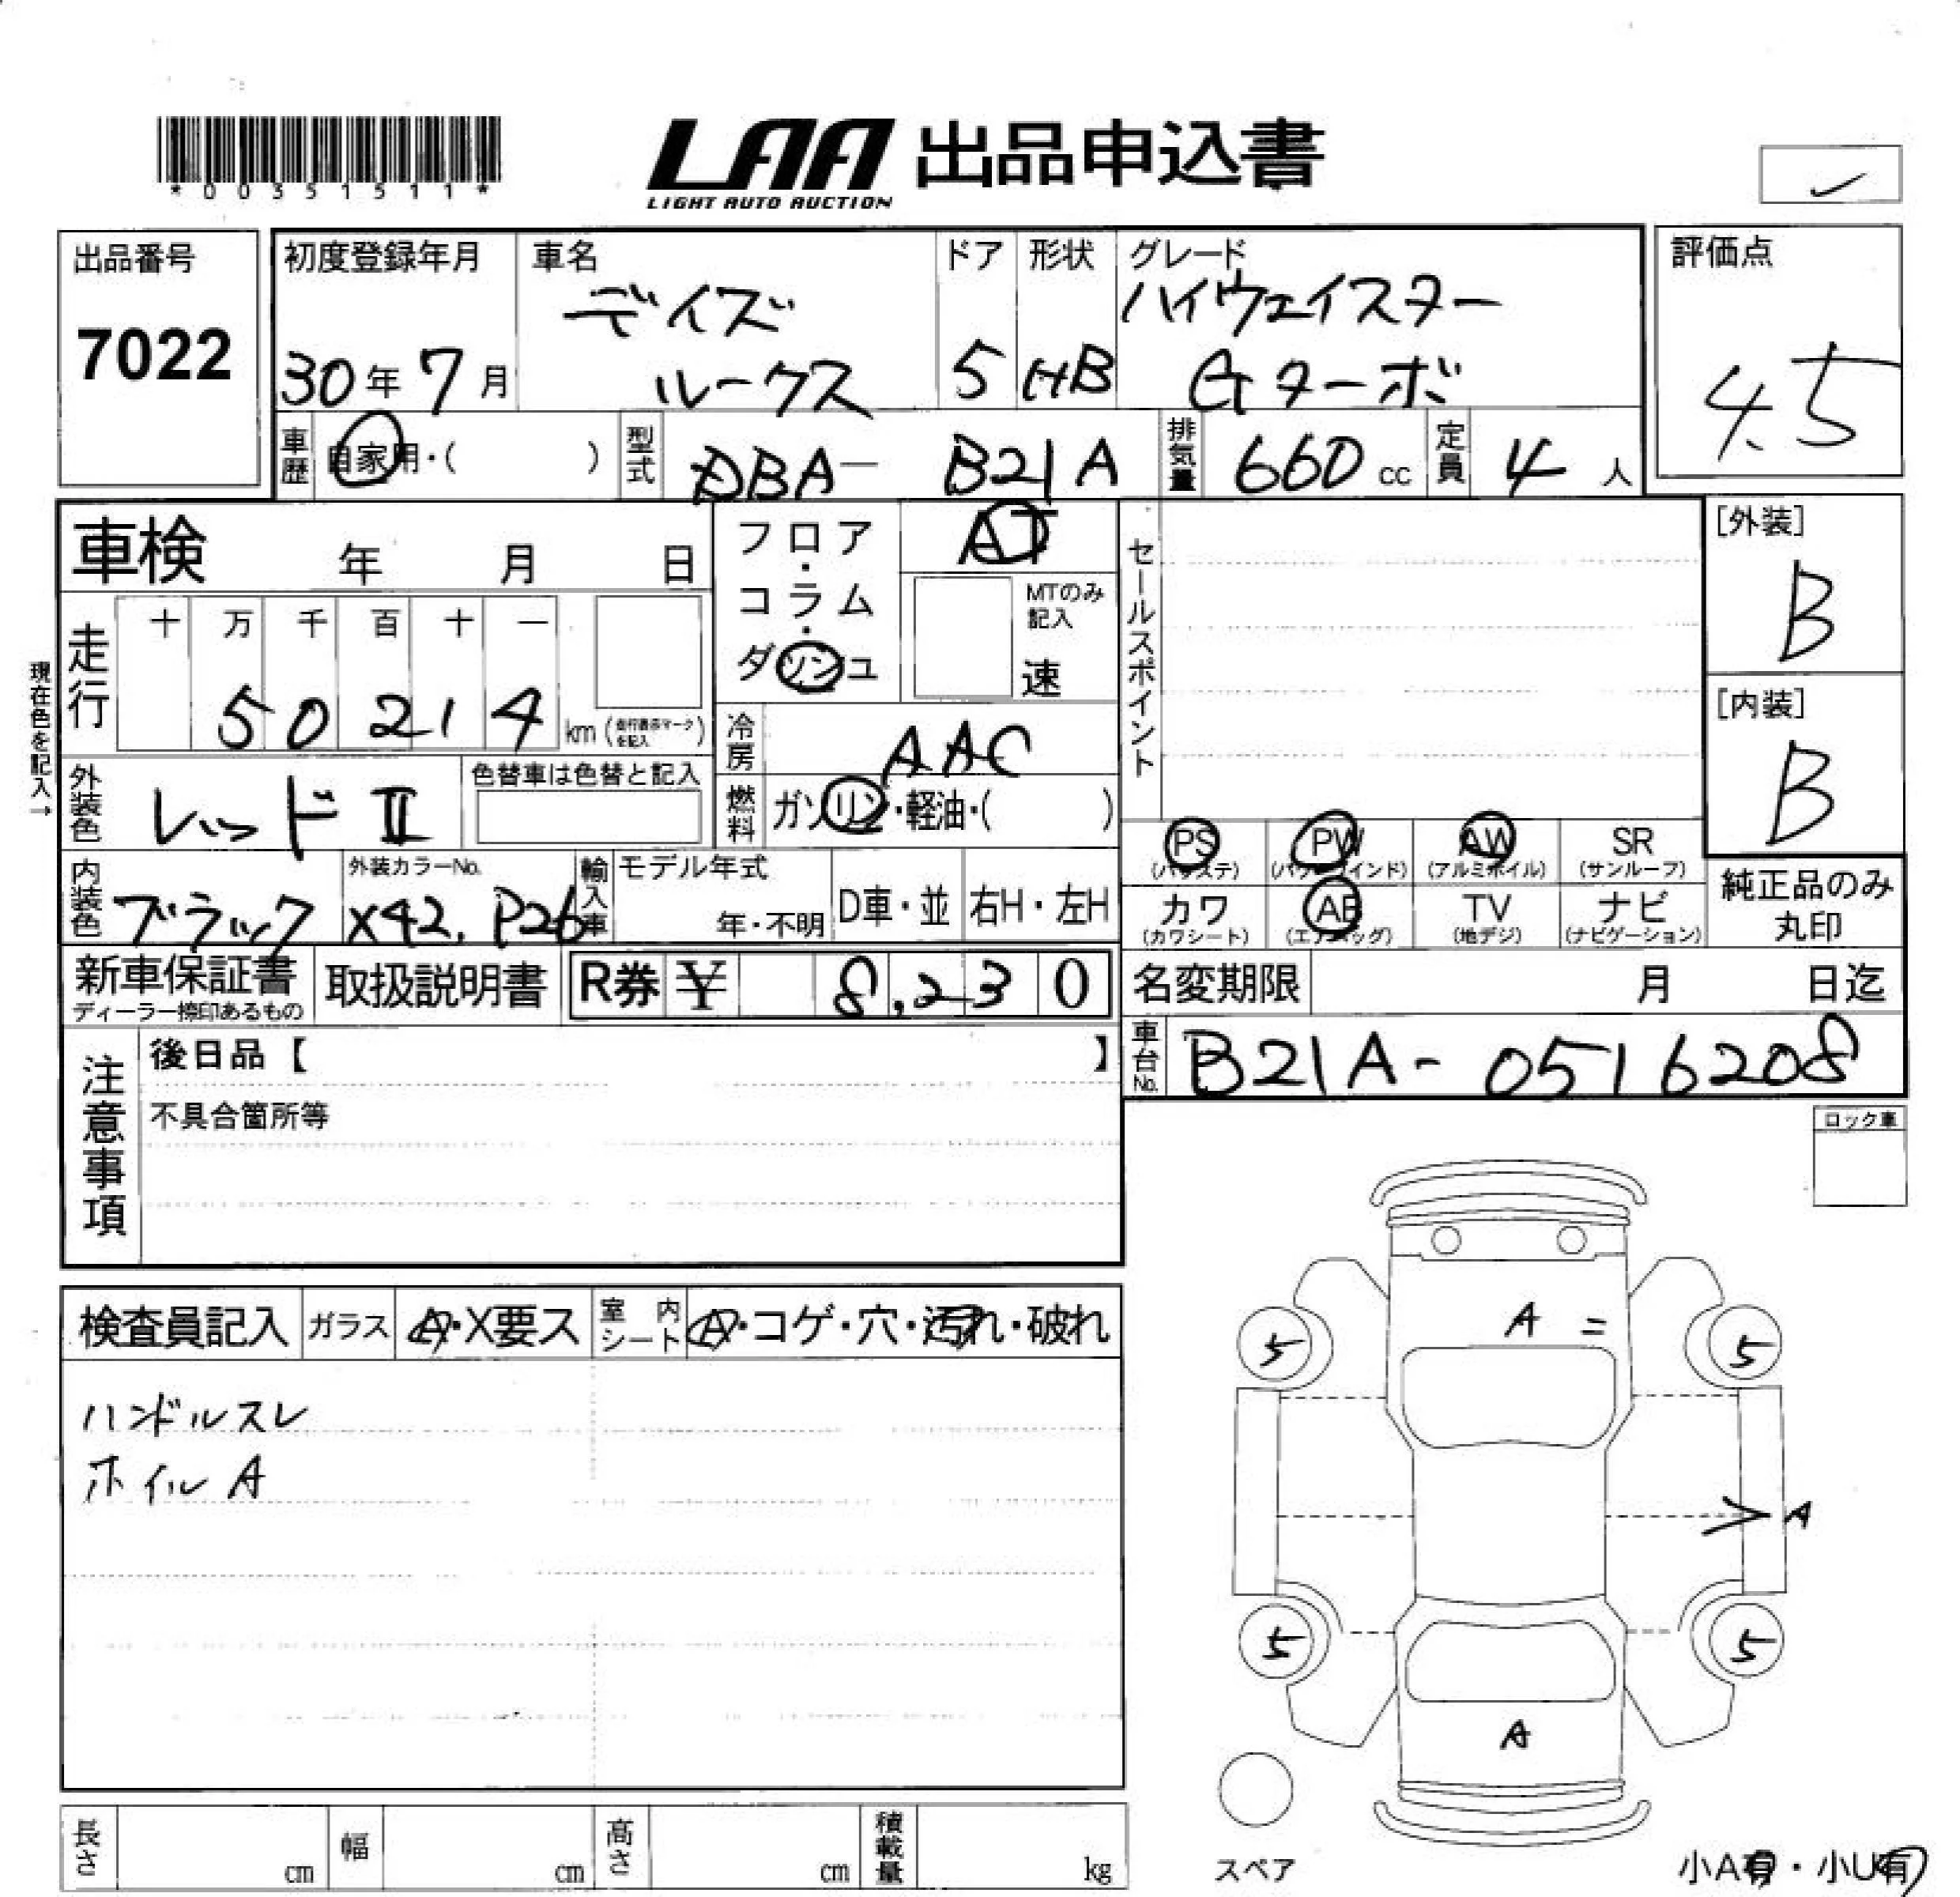 *00351511*
LAA 出品申込書
LIGHT AUTO AUCTION
出品番号
7022
初度登録年月
30年7月
車名
デイズ
ルークス
ドア
5
形状
HB
グレード
ハイウェイスター
Gターボ
評価点
4.5
車歴 自家用・( )
型式 DBA- B21A
排気量 660 cc
定員 4 人
車検 年 月 日
フロア・コラム・ダ ュ
AT
MTのみ
記入
速
セールスポイント
[外装]
B
[内装]
B
現在色を記入→
走行
十 万 千 百 十 一
5 0 2 1 4 km (走行表示マークを記入)
冷房 AAC
外装色 レッドⅡ
色替車は色替と記入
燃料 ガソリン・軽油・( )
PS (パワステ)
PW (パワーウインド)
AW (アルミホイル)
SR (サンルーフ)
カワ (カワシート)
AB (エアバッグ)
TV (地デジ)
ナビ (ナビゲーション)
純正品のみ
丸印
内装色 ブラック
外装カラーNo.
X42, P26
輸入車
モデル年式
年・不明
D車・並
右H・左H
新車保証書
ディーラー捺印あるもの
取扱説明書
R券 ¥ 8,230
名変期限 月 日迄
車台No. B21A-0516208
注意事項
後日品【 】
不具合箇所等
ロック車
検査員記入
ガラス A・X要ス
室内シート A・コゲ・穴・汚れ・破れ
ハンドルスレ
ホイルA
A =
5 5
> A
5 5
A
スペア
小A有・小U有
長さ cm
幅 cm
高さ cm
積載量 kg